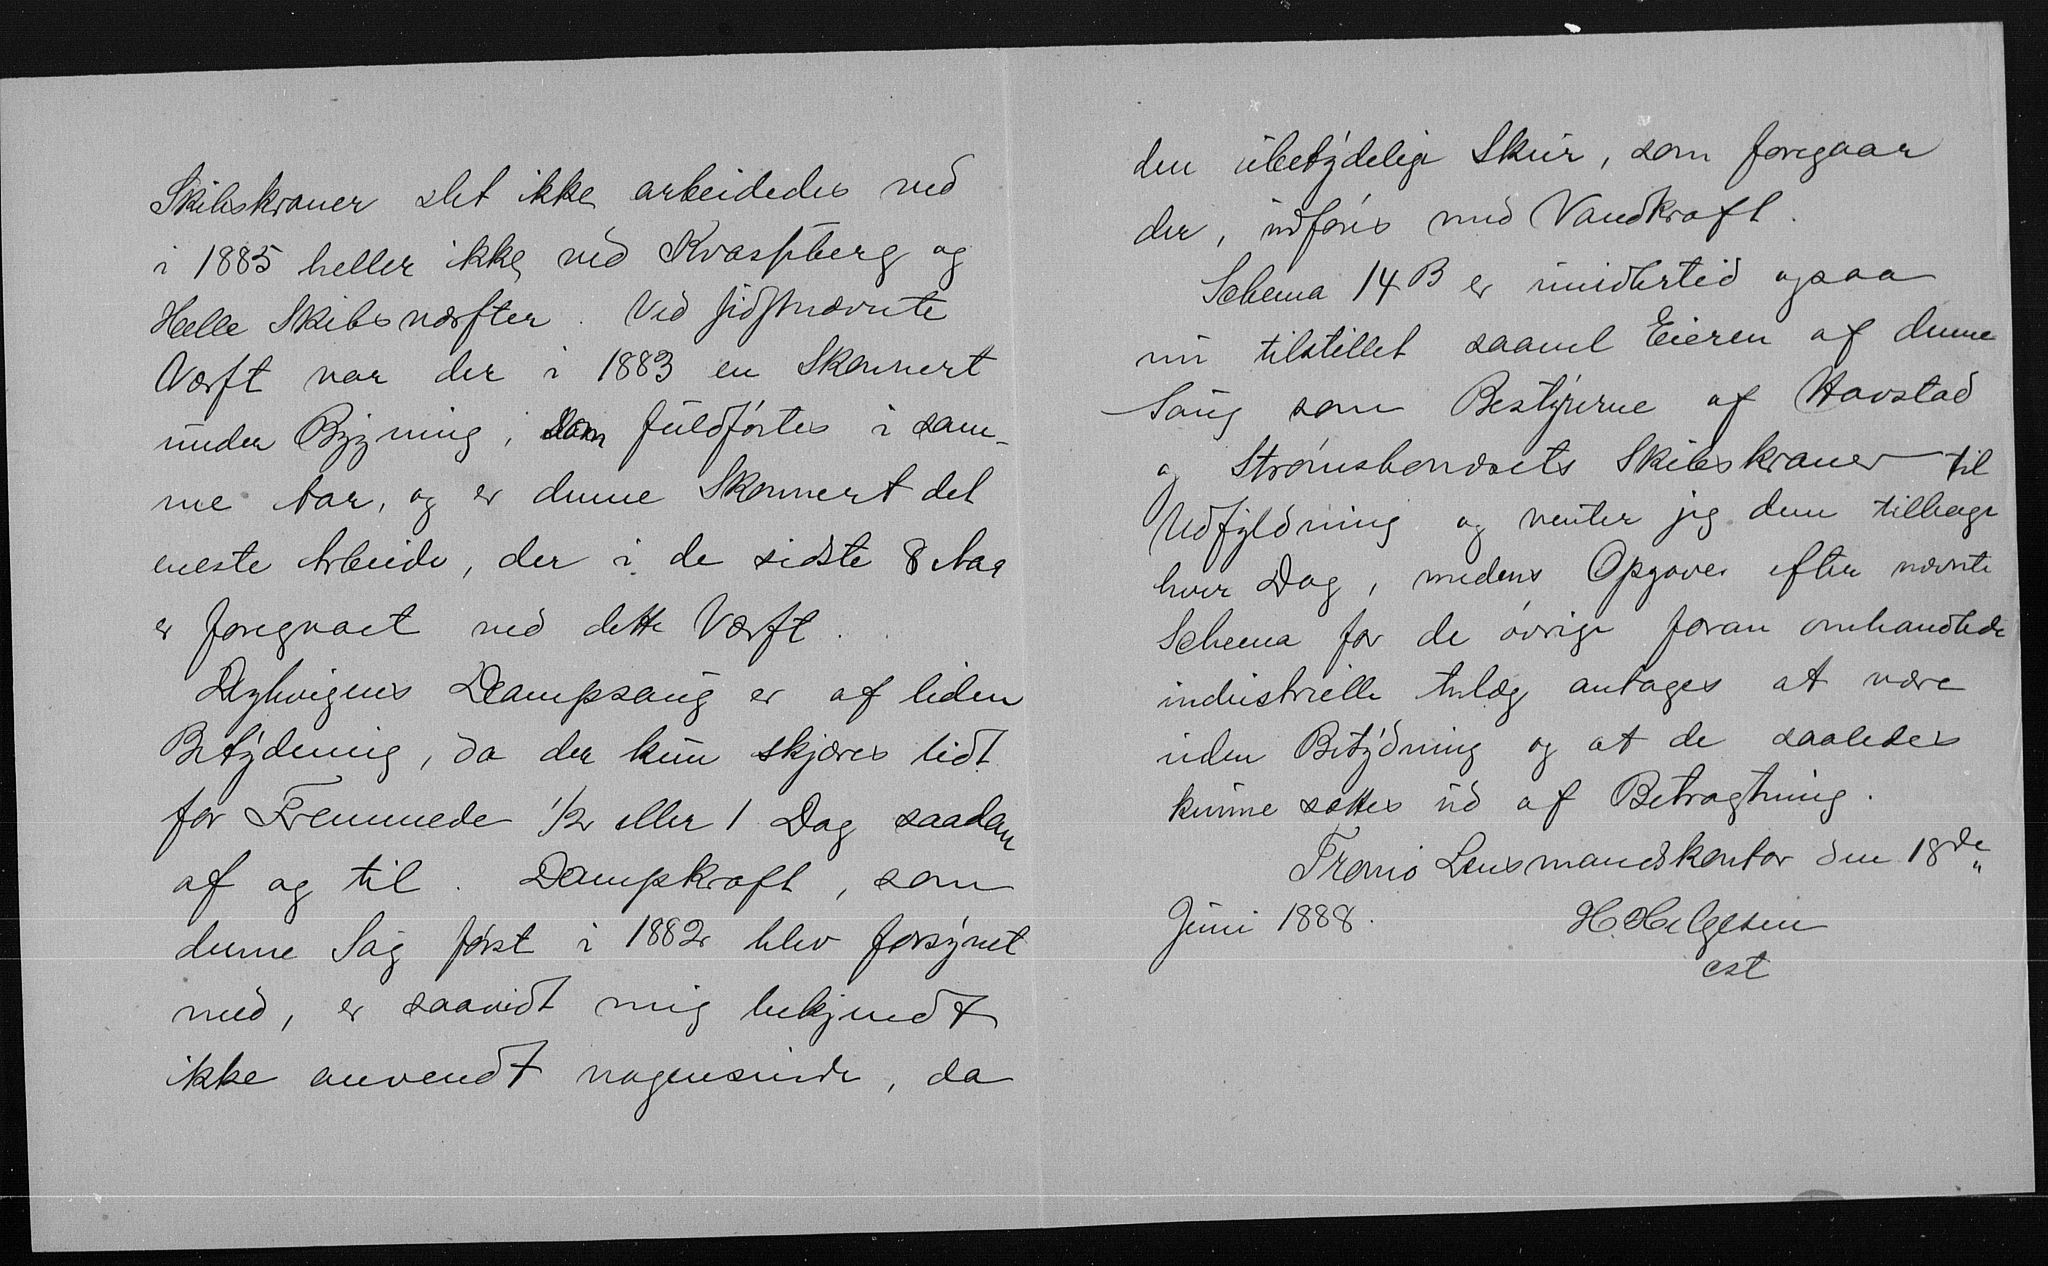 Skibskraner slet ikke arbeidedes ved
i 1885 heller ikke ved Kvaspberg og
Helle Skibsværfter. Ved sidstnævnte
Værft var der i 1883 en Skonnert
under Bygning, som fuldførtes i sam-
me Aar, og er denne Skonnert det
eneste Arbeide, der i de sidste 8 Aar
er foregaaet ved dette Værft.
Dampsaug er af liden
Betydning, da der kun skjæres lidt
for Fremmede 1/2 eller 1 Dag saadan
af og til. Dampkraft, som
denne Sag først i 1882 blev forsynet
med, er saavidt mig bekjendt
ikke anvendt nogensinde, da
den ubetydelige Skur, som foregaar
der, udføres med Vandkraft.
Schema 14 B er imidlertid ogsaa
nu tilstillet saavel Eieren af denne
Saug som Bestyrerne af Havstad
og Strømsbonæsets Skibskraner til
Udfyldning og venter jeg dem tilbage
hver Dag, medens Opgaver efter nævnte
Schema for de øvrige foran omhandlede
industrielle Anlæg antages at være
uden Betydning og at de saaledes
kunne sættes ud af Betragtning.
Tromø Lensmandskontor den 18de
Juni 1888.
H. Helgesen
cst